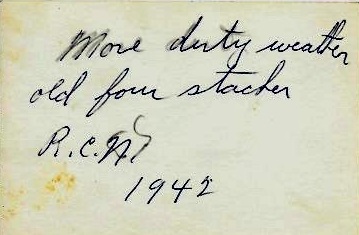 More dirty weather
old four stacker
R.C.N
1942